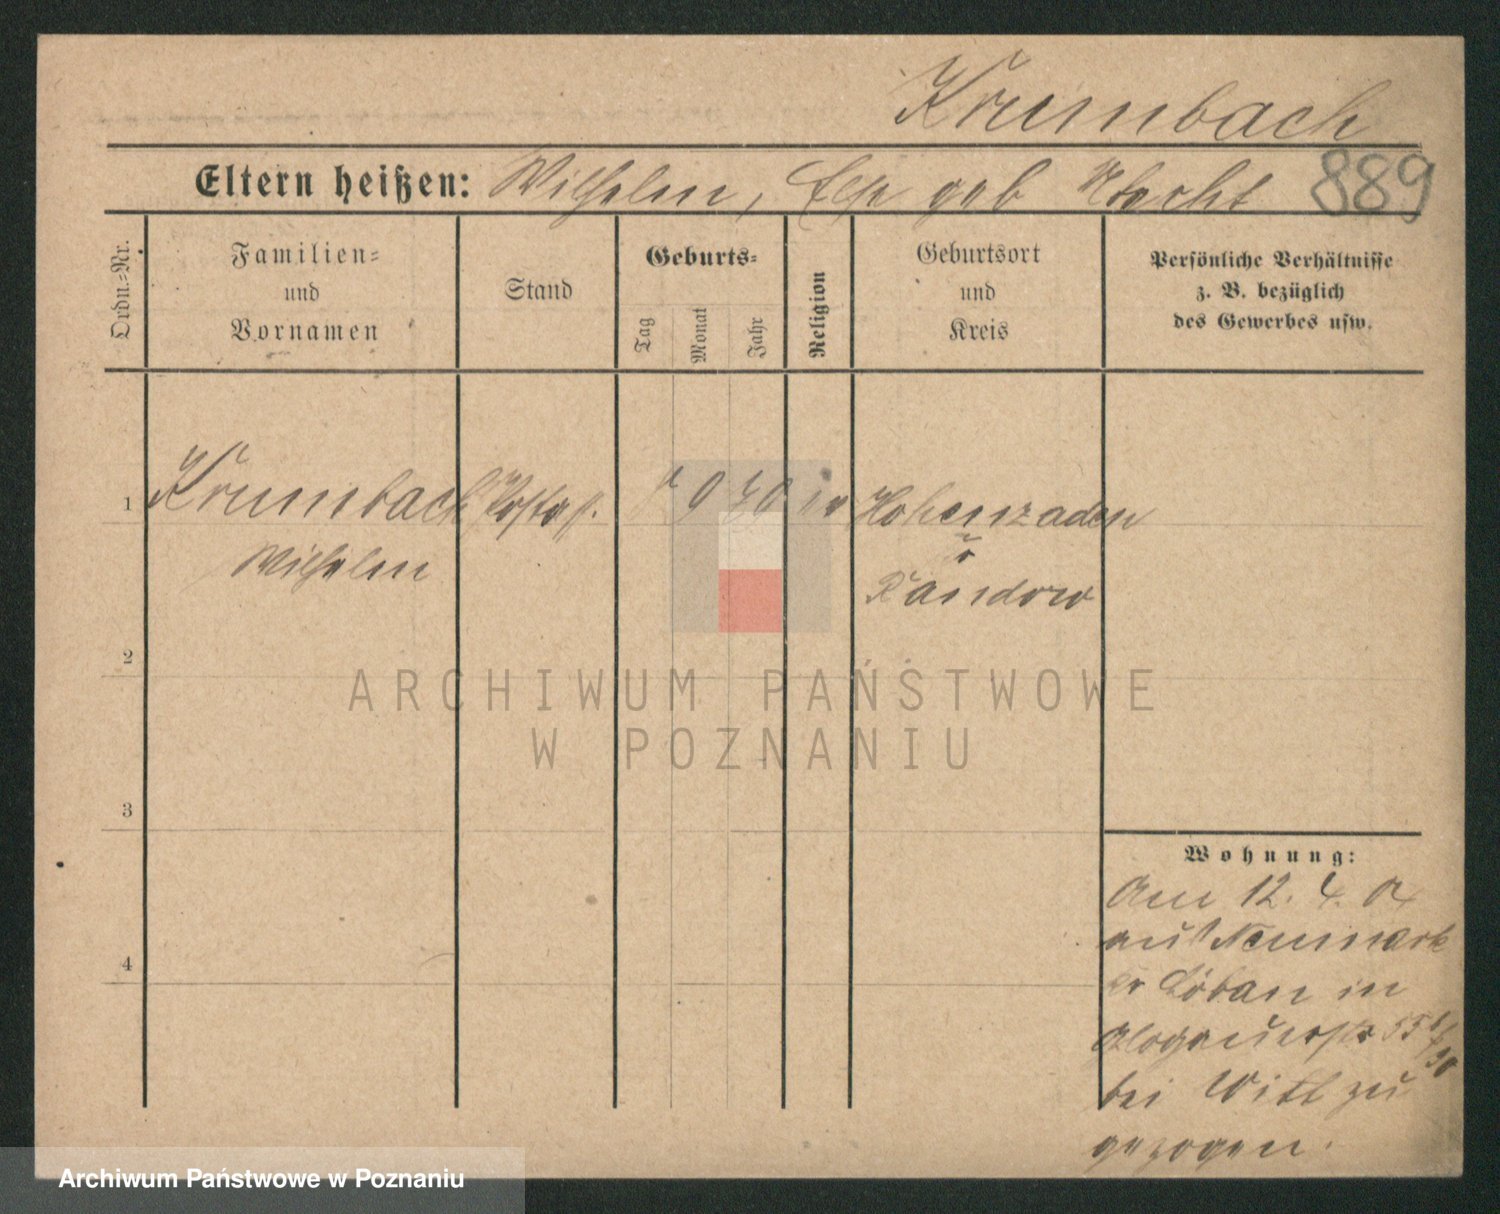 Krumbach
Eltern heißen: Wilhelm, geb 889
Ordn.-Nr.
Familien-
und
Vornamen
Stand
Geburts-
Tag
Monat
Jahr
Religion
Geburtsort
und
Kreis
Persönliche Verhältnisse
z. B. bezüglich
des Gewerbes usw.
1 Krumbach 9 Hohenzaden
Wilhelm
Randow
2
3
4
Wohnung:
Am 12. 4. 04
aus Neumark
Kr Löbau in
Glogauerstr
bei Witt zu
gezogen.
ARCHIWUM PAŃSTWOWE
W POZNANIU
Archiwum Państwowe w Poznaniu